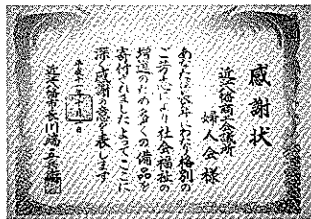 感謝状
近江八幡商工会議所
婦人会様
あなたは長年にわたり格別の
ご芳志により社会福祉の
増進のため多くの備品を
寄付されましたよってここに
深く感謝の意を表します
平成十一年 月 日
近江八幡市長川端五兵衛